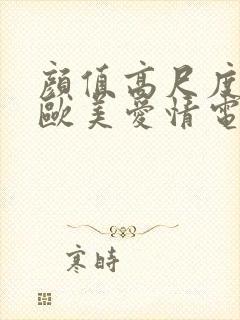 顔值高尺度
歐美愛情電
寒時